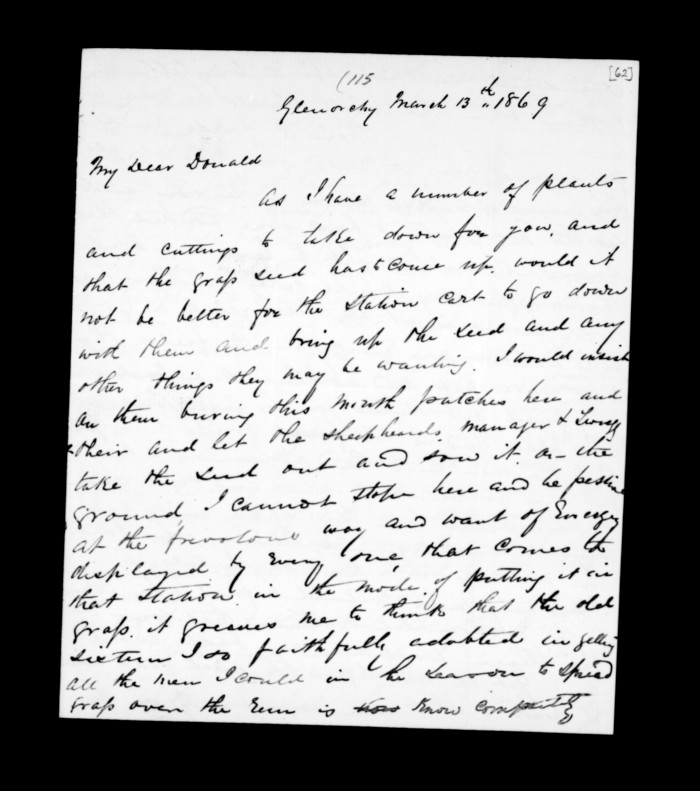 [62]
(115
Glenorchy March 13th 1869
My Dear Donald
As I have a number of plants
and cuttings to take down for you, and
that the grass seed has to come up. would it
not be better for the station cart to go down
with them and bring up the seed and any
other things they may be wanting. I would insist
on them buring this month patches here and
their and let the shepheards, manager &
take the seed out and sow it on the
ground, I cannot stope here and be
at the way and want of Energy
displayed by Every one, that comes to
that station in the mode of putting it in
grass. it greaves me to think that the old
sixteen I so faithfully adobted in getting
all the men I could in the season to spread
grass over the Run is know